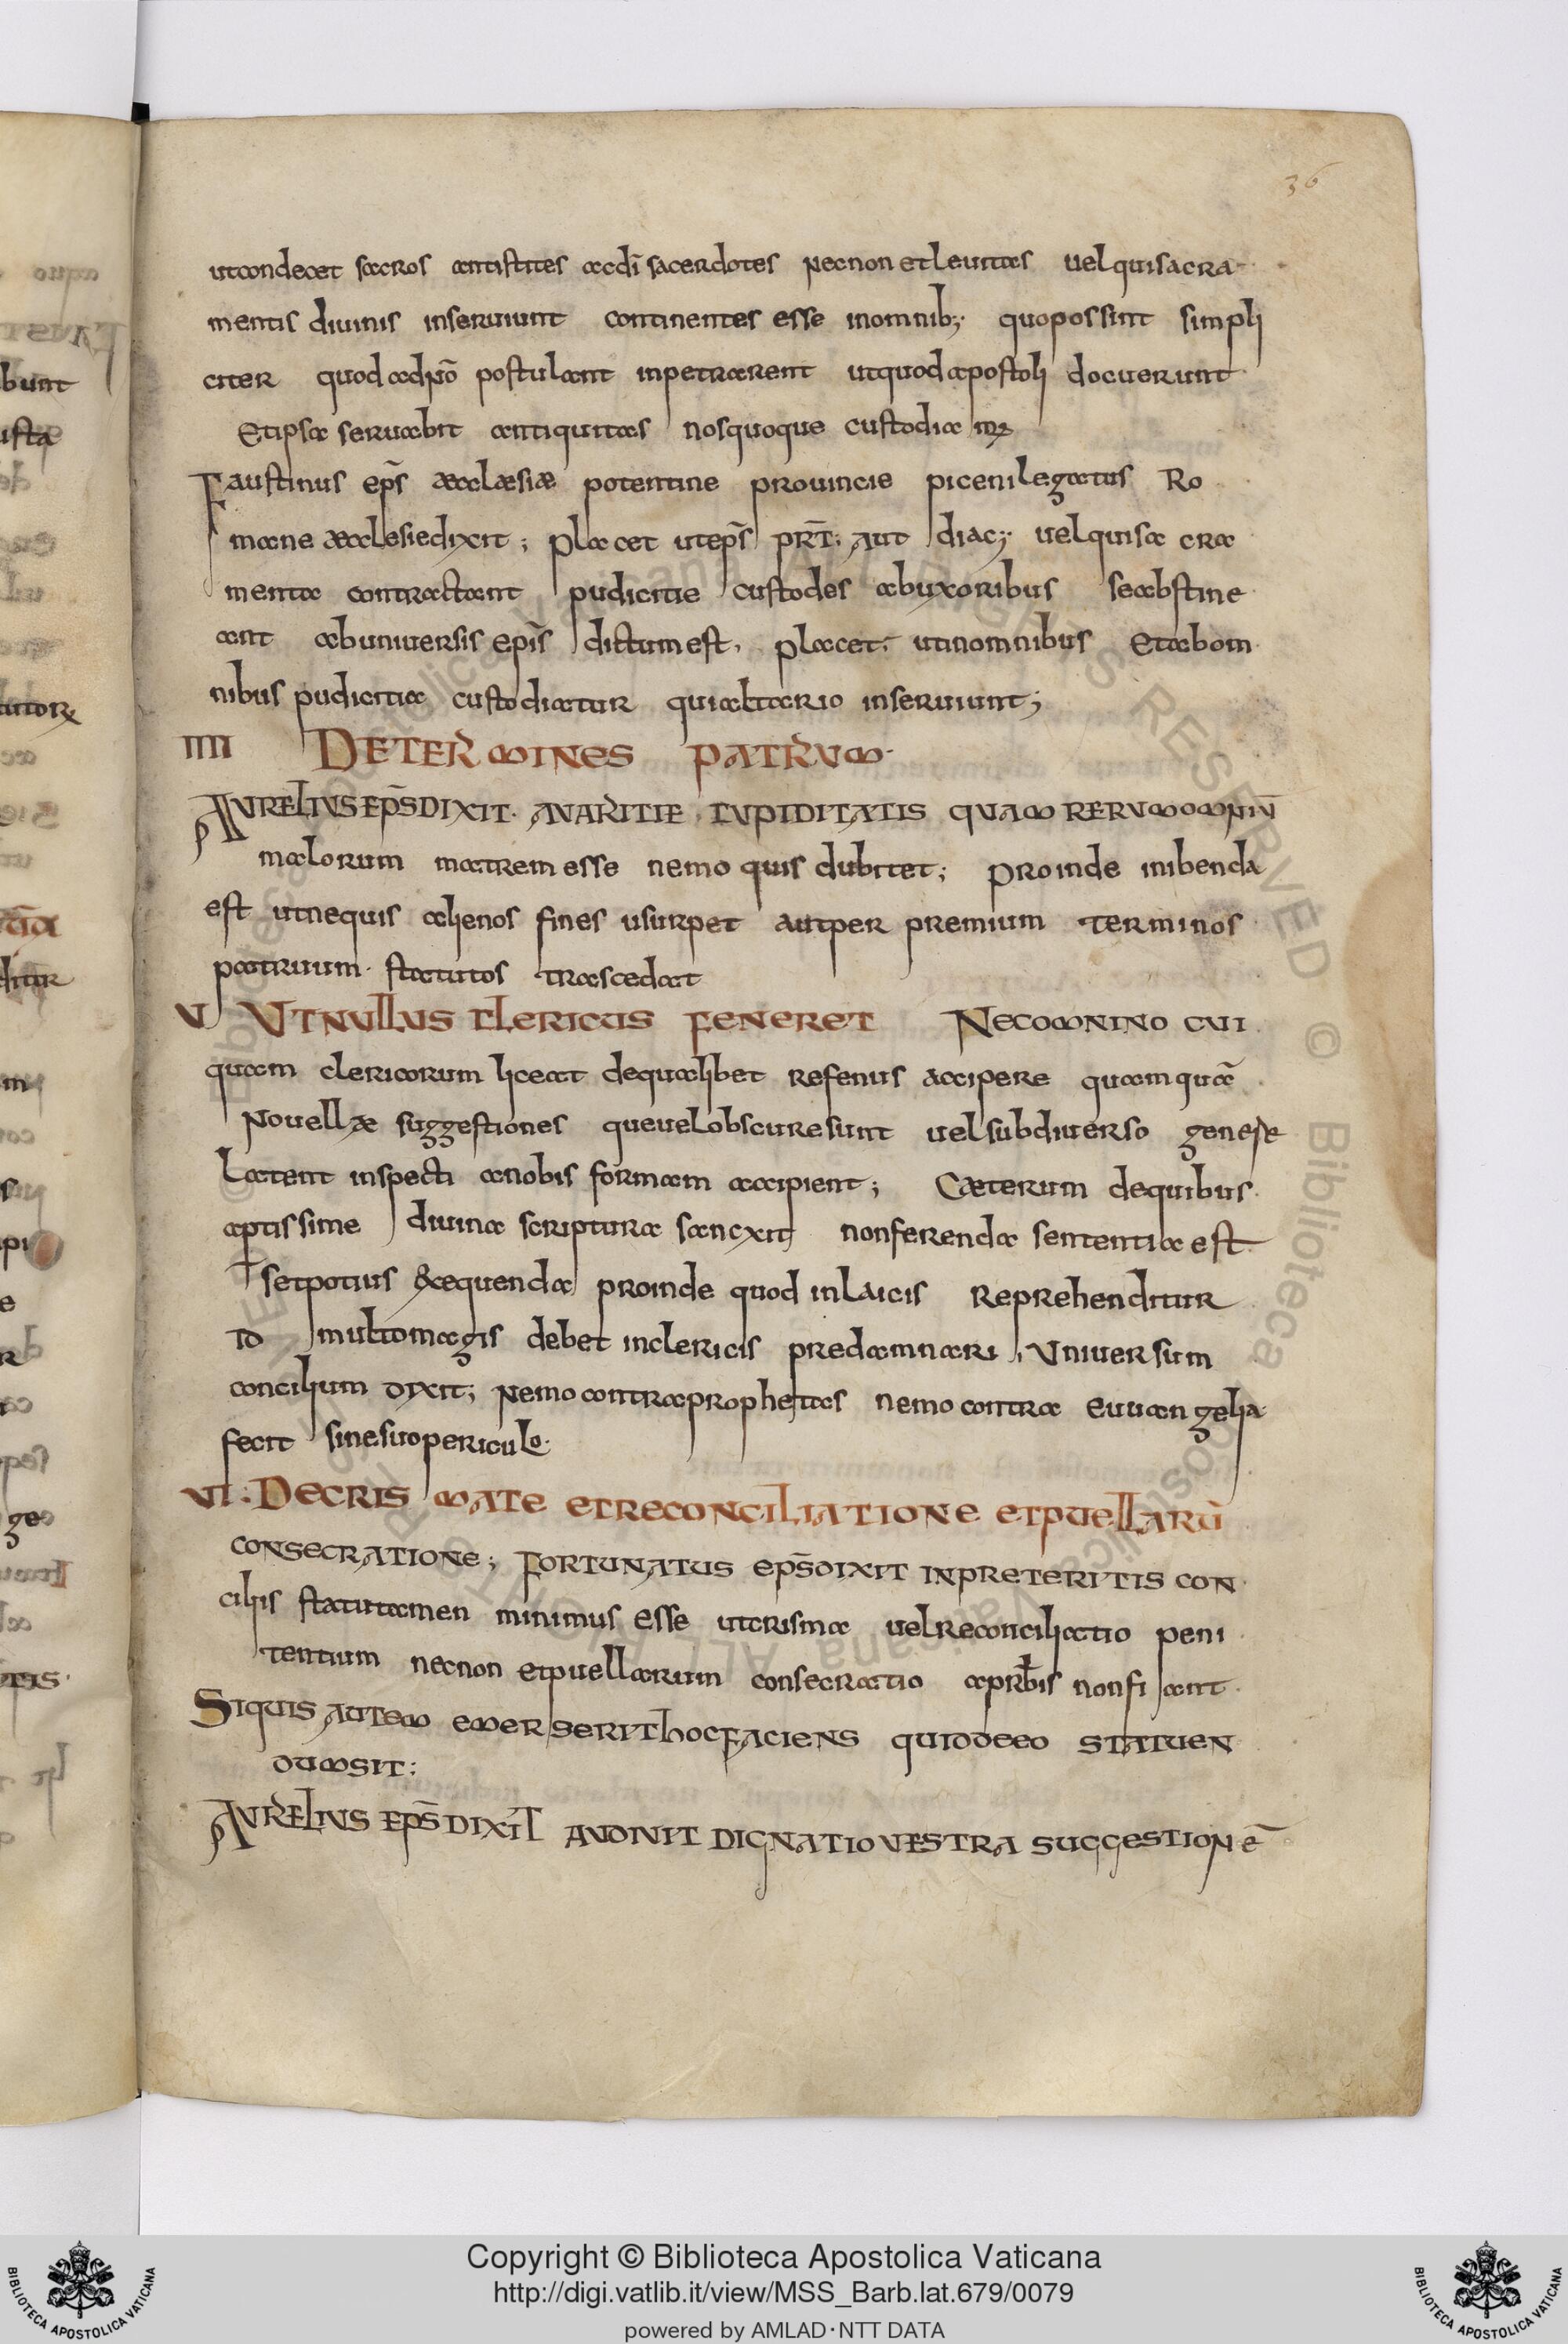 36
utcondecet sacros antistites acdi̅ sacerdotes necnon et leuitas uel qui sacra
mentis diuinis inseruiunt continentes esse inomnib; quo possint simpli
citer quod ad̅n̅o postulant inpetrarent utquod apostoli docuerunt
Et ipsa seruabit antiquitas nos quoque custodiamꝫ
Faustinus ep̅s æcclæsiæ potentine prouincie piceni legatus Ro
mane æcclesie dixit; placet ut ep̅s pr̅t; aut diac; uel qui sacra
menta contractant pudicitie custodes ab uxoribus se abstine
ant ab uniuersis ep̅is dictum est, placet; ut in omnibus Et ab om
nibus pudicitia custodiatur qui altario inseruiunt;
IIII DE TERMINES PATRUM·
AURELIUS EP̅S DIXIT· AVARITIE CUPIDITATIS QUAM RERUM OMNIU̅
malorum matrem esse nemo quis dubitet; proinde inibenda
est ut nequis alienos fines usurpet aut per premium terminos
patruum· statutos trascedat
V UT NULLUS CLERICUS FENERET NEC OMNINO CUI
quam clericorum liceat de qualibet re fenus accipere quamqua̅
Nouellæ suggestiones que uel obscure sunt uel sub diuerso genere
Latent inspecti a nobis formam accipient; Cæterum de quibus
aptissime diuina scriptura sancxit non ferenda sententia est
set potius &xequenda proinde quod in laicis Reprehenditur
ID multo magis debet in clericis predamnari, Uniuersum
concilium dixit; Nemo contra prophetas nemo contra euuangelia
fecit sine suo periculo·
VI: DE CRISMATE ET RECONCILIATIONE ET PUELLARU̅
CONSECRATIONE; FORTUNATUS EP̅S DIXIT IN PRETERITIS CON
ciliis statutamen minimus esse ut crisma uel reconciliatio peni
tentium necnon et puellarum consecratio a pr̅bis non fiant
SIQUIS AUTEM EMERSERIT HOC FACIENS QUID DE EO STATUEN
DUM SIT:
AURELIUS EP̅S DIXIT AUDIVIT DIGNATIO VESTRA SUGGESTIONE̅
Copyright © Biblioteca Apostolica Vaticana
http://digi.vatlib.it/view/MSS_Barb.lat.679/0079
powered by AMLAD·NTT DATA
BIBLIOTECA APOSTOLICA VATICANA
BIBLIOTECA APOSTOLICA VATICANA